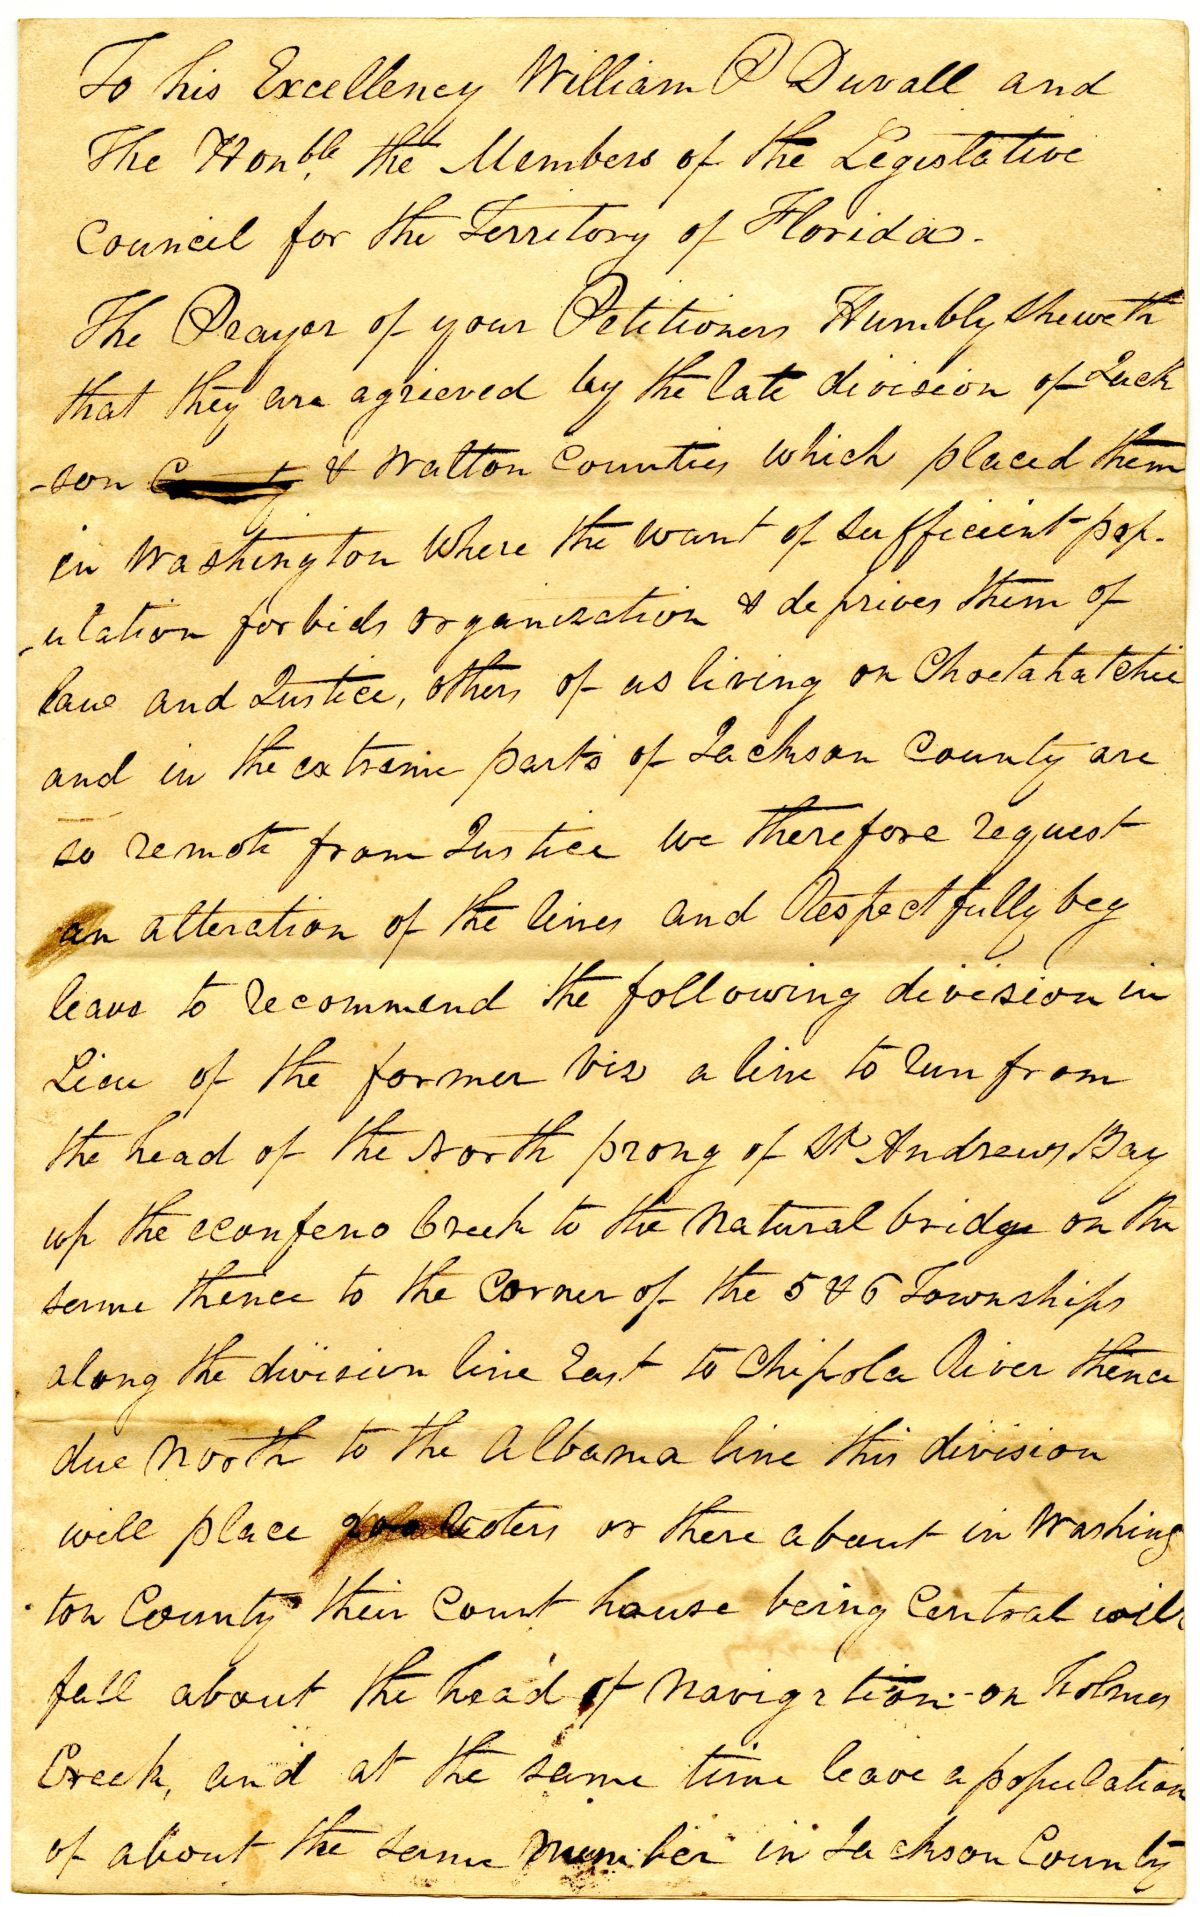 To his Excellency William P Duvall and
The Honble. the Members of the Legislative
Council for the Territory of Florida.
The Prayer of your Petitioners Humbly sheweth
that they are agrieved by the late division of Jack
-son County & Walton Counties which placed them
in Washington Where the want of sufficient pop-
-ulation forbids organization & deprives them of
law and Justice, others of us living on Choctahatchie
and in the extreme parts of Jackson County are
so remote from Justice we therefore request
an alteration of the lines and Respectfully beg
leave to recommend the following division in
Lieu of the former viz a line to run from
the head of the North prong of St Andrews Bay
up the econfeno Creek to the Natural bridge on the
same thence to the Corner of the 5 & 6 Townships
along the division line East to Chipola River thence
due North to the Albama line this division
will place 200 Voters or there about in Washing
ton County their Court house being Central will
fall about the head of Navigation on Holmes
Creek, and at the same time leave a population
of about the same number in Jackson County